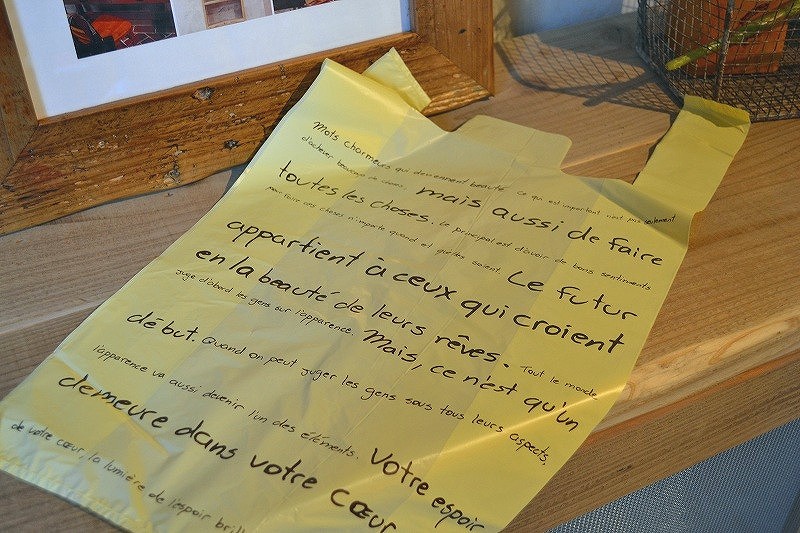 Mots charmeurs qui deviennent beauté. Ce qui est important n'est pas seulement
d'achever beaucoup de choses, mais aussi de faire
toutes les choses. Le principal est d'avoir de bons sentiments
pour faire ces choses n'importe quand et qu'elles soient. Le futur
appartient à ceux qui croient
en la beauté de leurs rêves. Tout le monde
juge d'abord les gens sur l'apparence. Mais, ce n'est qu'un
début. Quand on peut juger les gens sous tous leurs aspects,
l'apparence va aussi devenir l'un des éléments. Votre espoir
demeure dans votre cœur
de votre cœur, la lumière de l'espoir brill